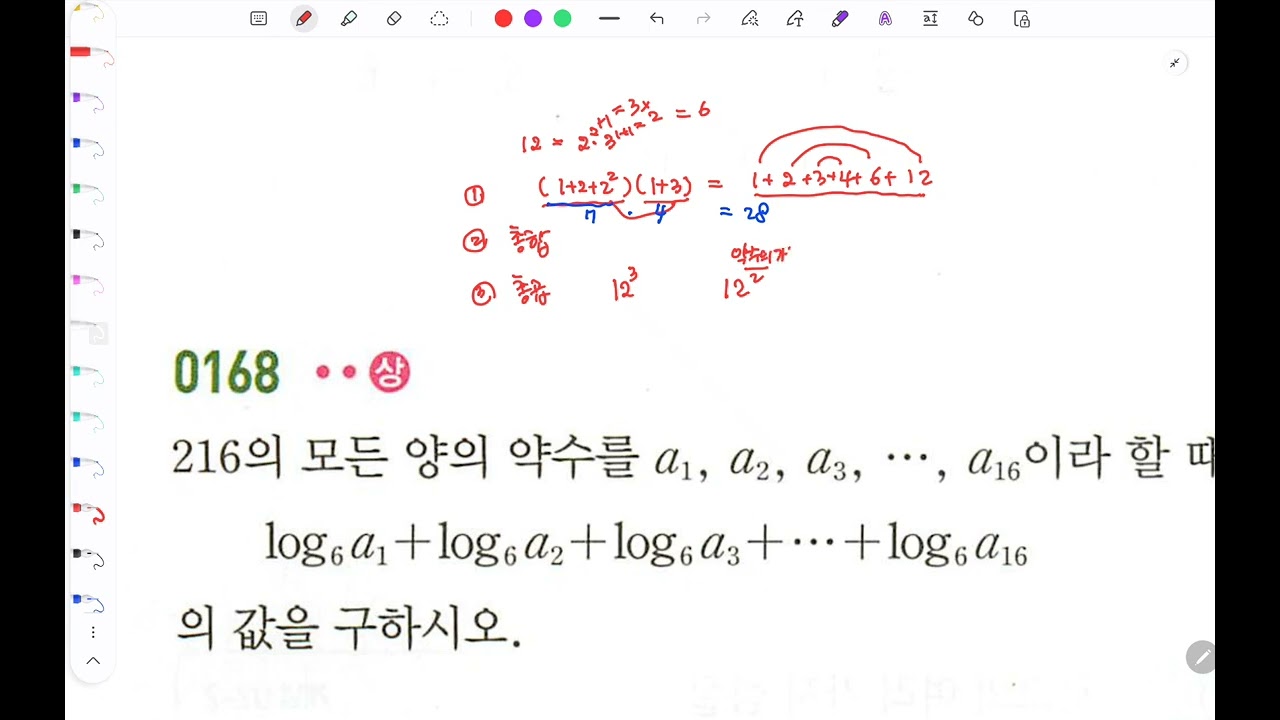 2+1=3×
12 = 2²·3¹⁺¹⁼² = 6
① (1+2+2²)(1+3) = 1+2+3+4+6+12
7 · 4 = 28
② 총합
약수의
③ 총곱 12³ 12²
0168 상
216의 모든 양의 약수를 a₁, a₂, a₃, ⋯, a₁₆이라 할 때
log₆a₁+log₆a₂+log₆a₃+⋯+log₆a₁₆
의 값을 구하시오.